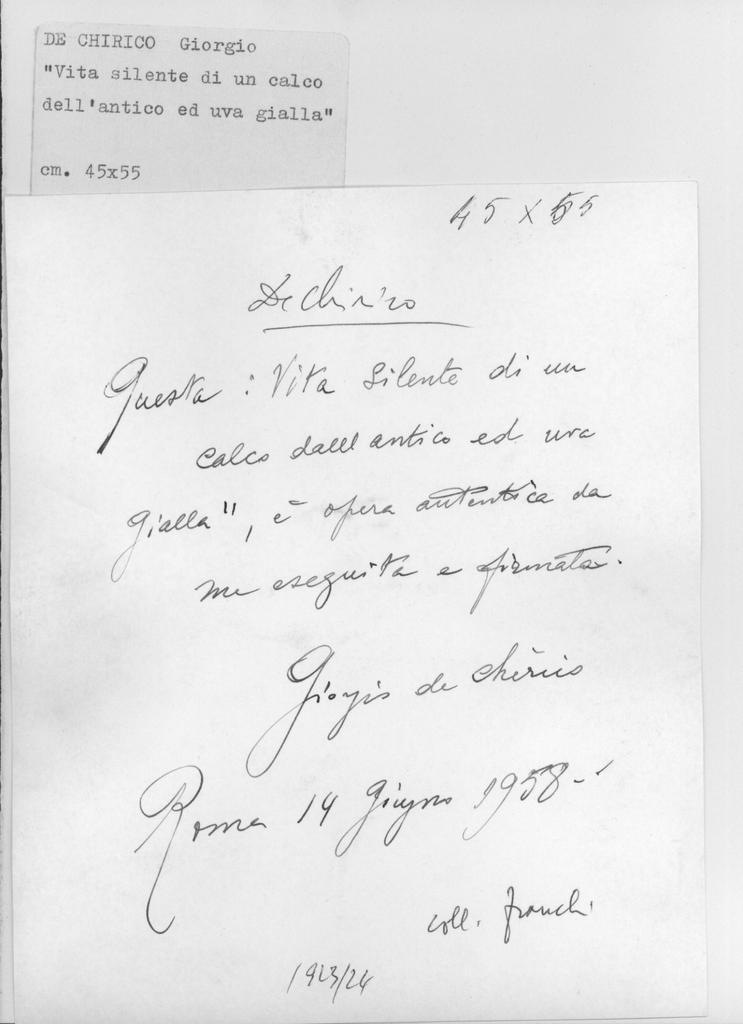 DE CHIRICO Giorgio
"Vita silente di un calco
dell'antico ed uva gialla"
cm. 45x55
45 x 55
De Chirico
Questa : Vita silente di un
calco dall antico ed uva
gialla", è opera autentica da
me eseguita e firmata.
Giorgio de Chirico
Roma 14 Giugno 1958-
coll. Franchi
1923/24